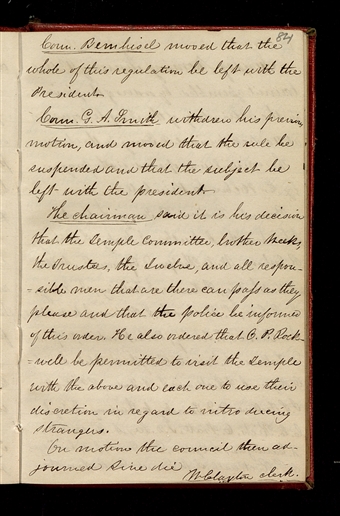 82
Coun. Bernhisel moved that the
whole of this regulation be left with the
President.
Coun. G. A. Smith withdrew his previous
motion, and moved that the rule be
suspended and that the subject be
left with the president.
The chairman said it is his decision
that the Temple Committee, brother Meeks,
the Trustees, the Twelve, and all respon-
=sible men that are there can pass as they
please and that the police be informed
of this order. He also ordered that O. P. Rock-
=well be permitted to visit the Temple
with the above and each one to use their
discretion in regard to introducing
strangers.
On motion the council then ad-
journed sine die
W. Clayton clerk.